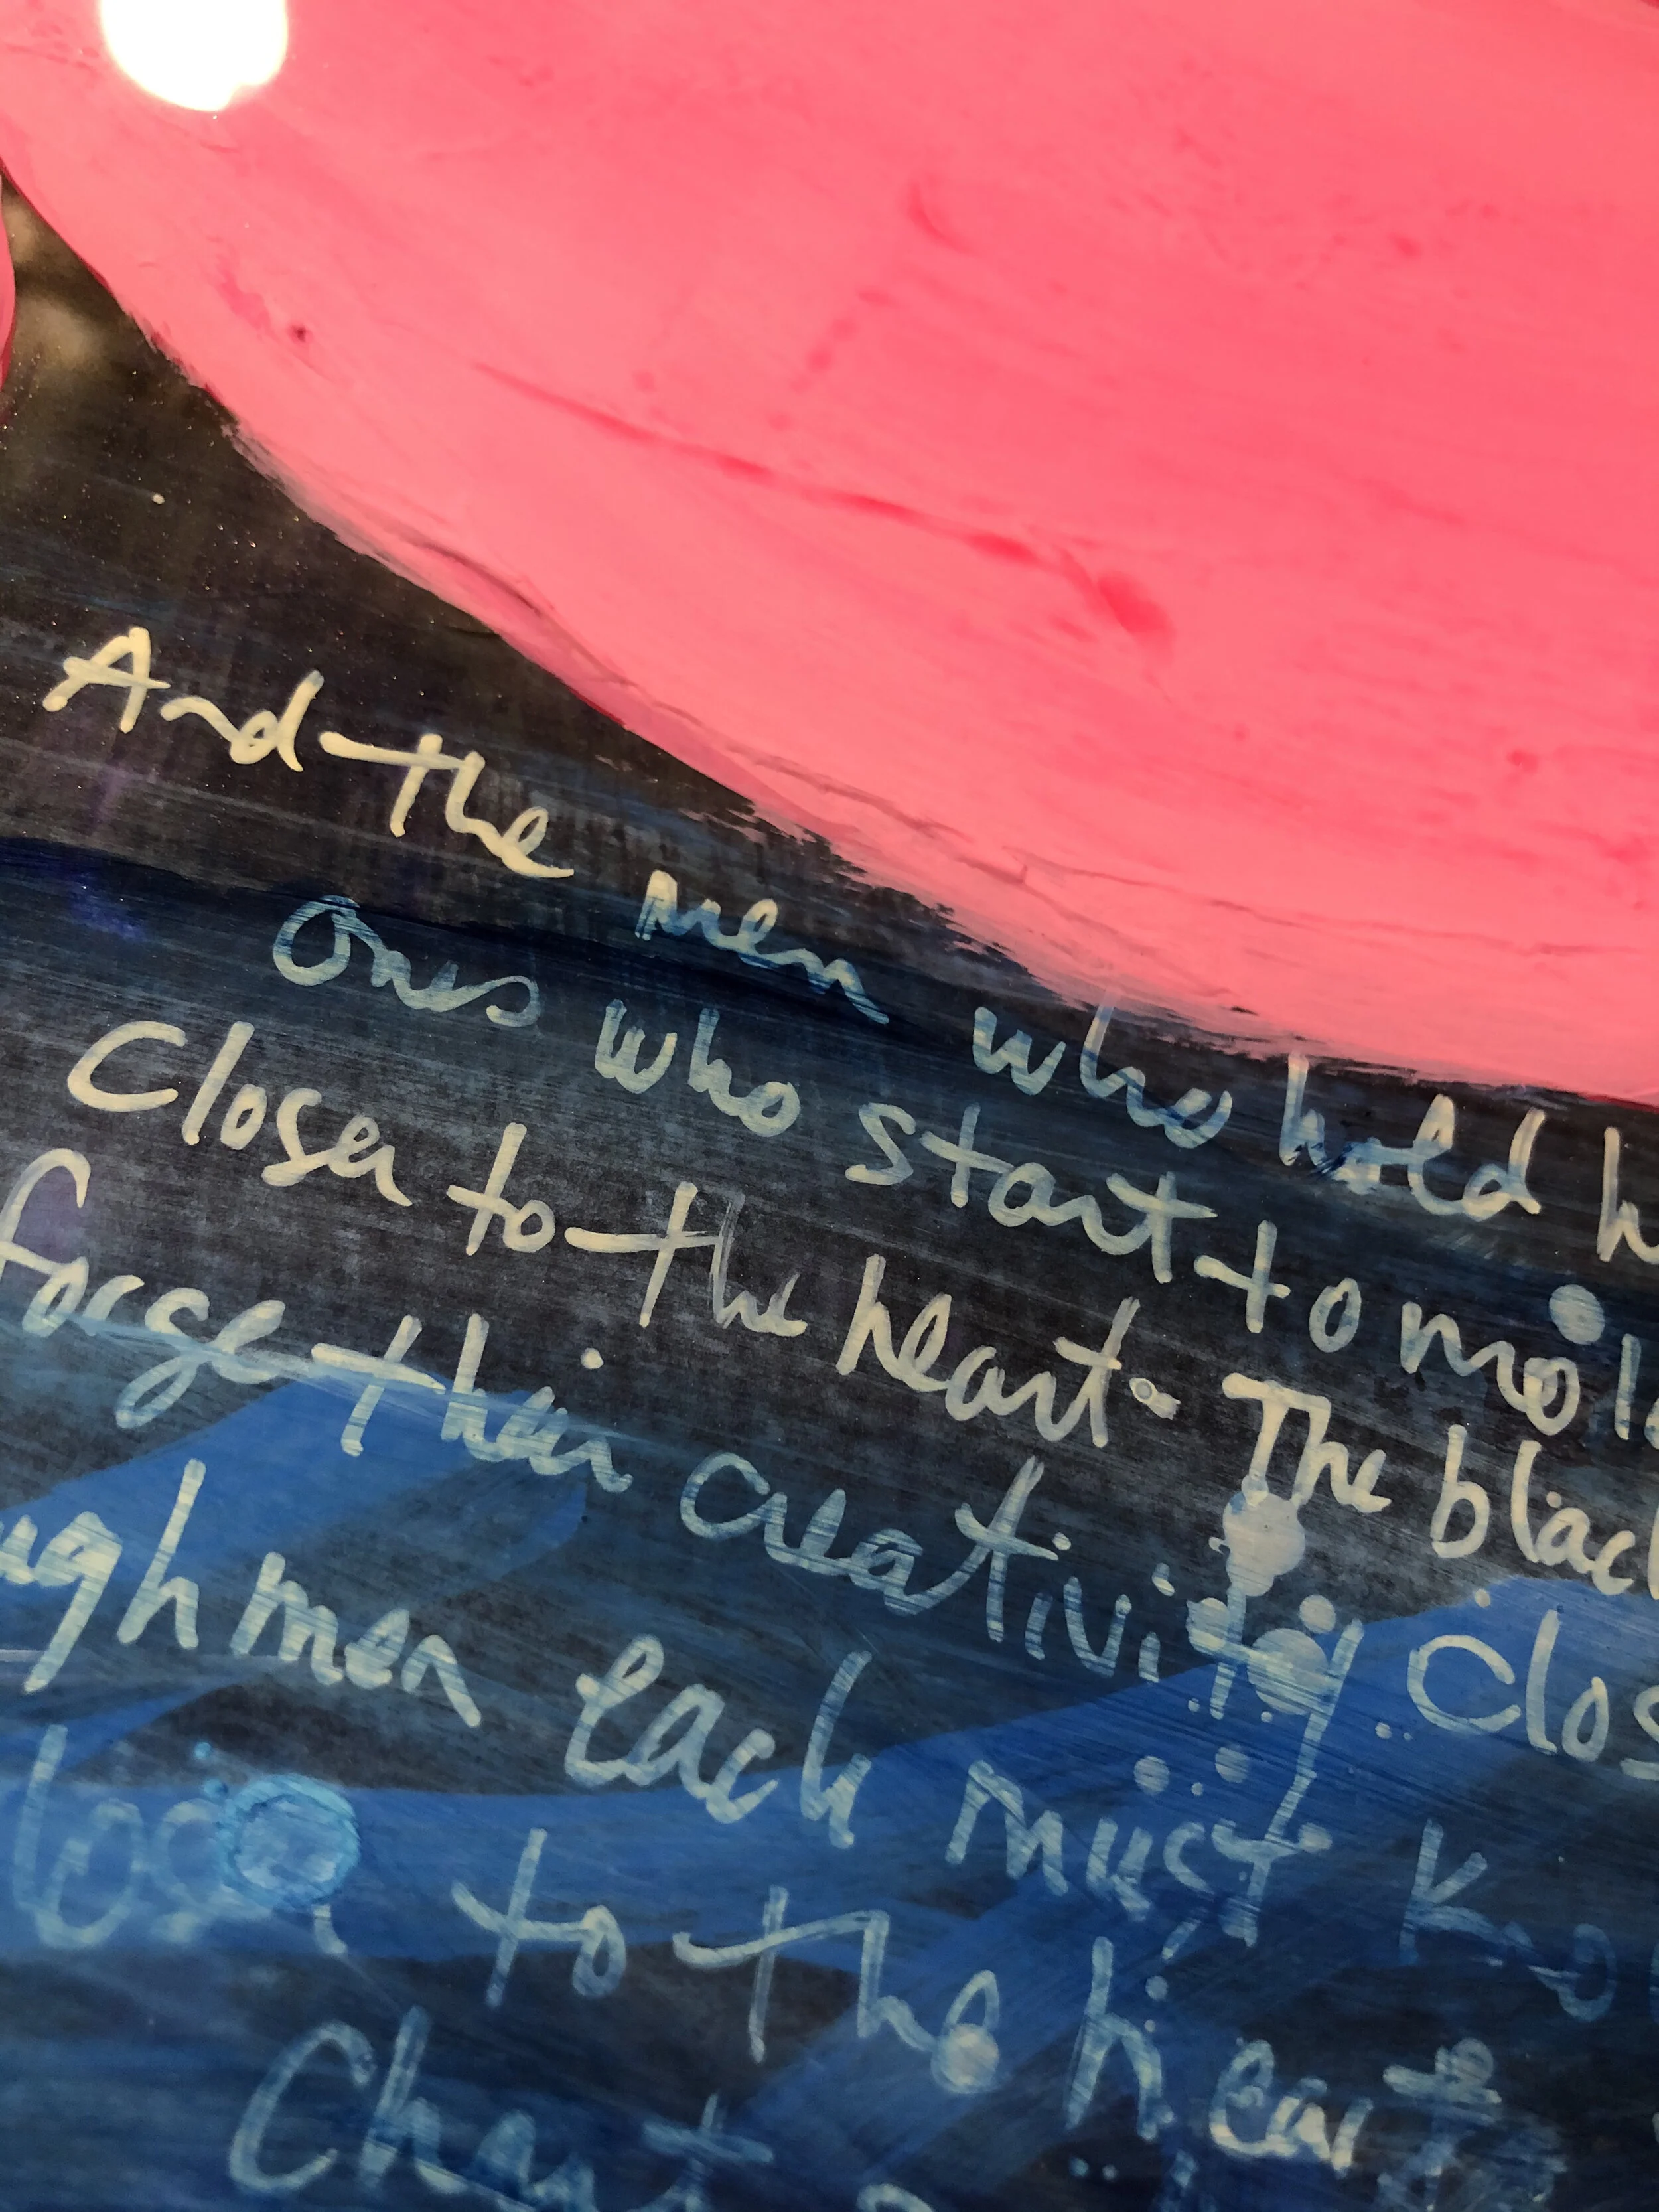 And the men who hold h
Ones who start to mol
Closer to the heart. The blac
forge their creativity Clos
ugh men each must kno
to the heart
Chart